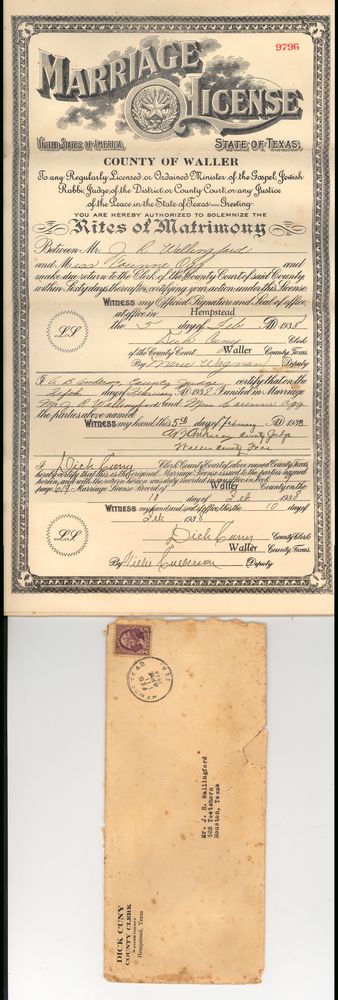 9796
MARRIAGE
LICENSE
UNITED STATES OF AMERICA, STATE OF TEXAS,
COUNTY OF WALLER
To any Regularly Licensed or Ordained Minister of the Gospel, Jewish
Rabbi, Judge of the District or County Court, or any Justice
of the Peace in the State of Texas—Greeting:
YOU ARE HEREBY AUTHORIZED TO SOLEMNIZE THE
Rites of Matrimony
Between Mr. J. R. Wallingford
and Miss and
make due return to the Clerk of the County Court of said County,
within Sixty days thereafter, certifying your action under this License.
WITNESS my Official Signature and Seal of office,
at office in Hempstead
the 5 day of Feb AD 1938
Dick Cuny Clerk
of the County Court Waller County, Texas
By Deputy
L.S.
I, County Judge certify that on the
day of February AD 1938 I united in Marriage
Mr. J. R. Wallingford and
the parties above named.
WITNESS my hand this 5th day of February AD 1938
County Judge
Waller County Texas
I, Dick Cuny Clerk County Court of above named County, Texas,
hereby certify that this
page 619 Marriage License Record of Waller County on the
10 day of Feb 1938
WITNESS my hand and seal of office this the 10 day of
Feb 1938
Dick Cuny County Clerk
Waller County, Texas
By Deputy
L.S.
HEMPSTEAD
TEX.
Mr. J. R. Wallingford
Houston, Texas
DICK CUNY
COUNTY CLERK
WALLER COUNTY
Hempstead, Texas